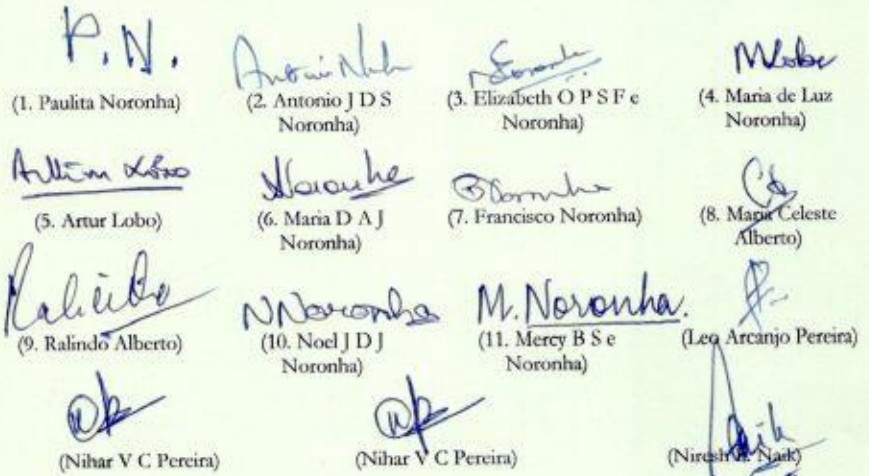 P. N.
(1. Paulita Noronha)
(2. Antonio J D S
Noronha)
(3. Elizabeth O P S F e
Noronha)
MLobo
(4. Maria de Luz
Noronha)
Artur Lobo
(5. Artur Lobo)
Noronha
(6. Maria D A J
Noronha)
(7. Francisco Noronha)
(8. Maria Celeste
Alberto)
(9. Ralindo Alberto)
NNoronha
(10. Noel J D J
Noronha)
M. Noronha.
(11. Mercy B S e
Noronha)
(Leo Arcanjo Pereira)
(Nihar V C Pereira)
(Nihar V C Pereira)
Naik
(Niresh Naik)